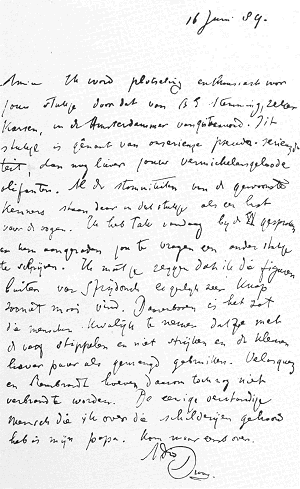 16 Juni 89.
Amice Ik word plotseling enthousiast voor
jouw stukje doordat van
Kersen, in de Amsterdammer van
stukje is genaaid van onzeerige pseudo-serieuzi-
teit, dan nog liever jouw
olifanten. Al de stommiteiten van de gewoonste
kenners staan daar in dat stukje als een last
voor de oogen. Ik heb Tak vandaag bij de gesproken
en hem aangeraden jou te vragen een ander stukje
te schrijven. Ik moet je zeggen dat ik die figuren
buiten van eigenlijk zeer knap
mooi vind. Daarboven is het zot
die menschen kwalijk te nemen dat ze met
de verf stippelen en niet strijken en de kleuren
liever puur als gemengd gebruiken. Velasquez
en Rembrandt hoeven daarom toch nog niet
verbrand te worden. De eenige verstandige
mensch die ik over die schilderijen gehoord
heb is mijn papa. Kom maar eens over.